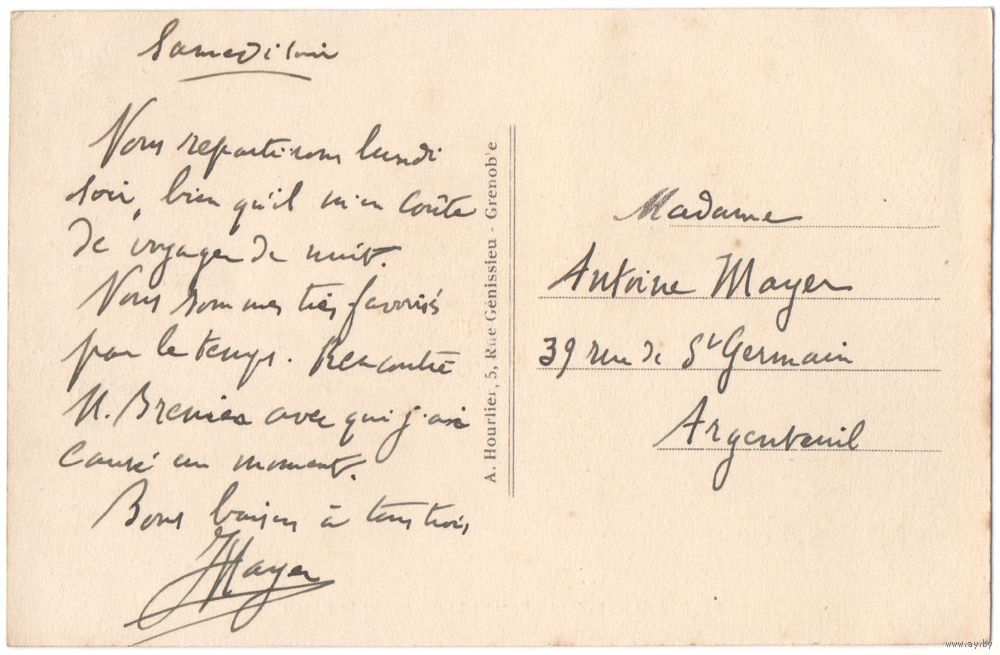 Samedi soir
Nous repartirons lundi
soir, bien qu'il m'en coûte
de voyager de nuit.
Nous sommes très favorisés
par le temps. Rencontré
M. Brenier avec qui j'ai
causé un moment.
Bons baisers à tous trois
Mayer
A. Hourlier, 5, Rue Génissieu - Grenob'e
Madame
Antoine Mayer
39 rue de St Germain
Argenteuil
www.ay.by